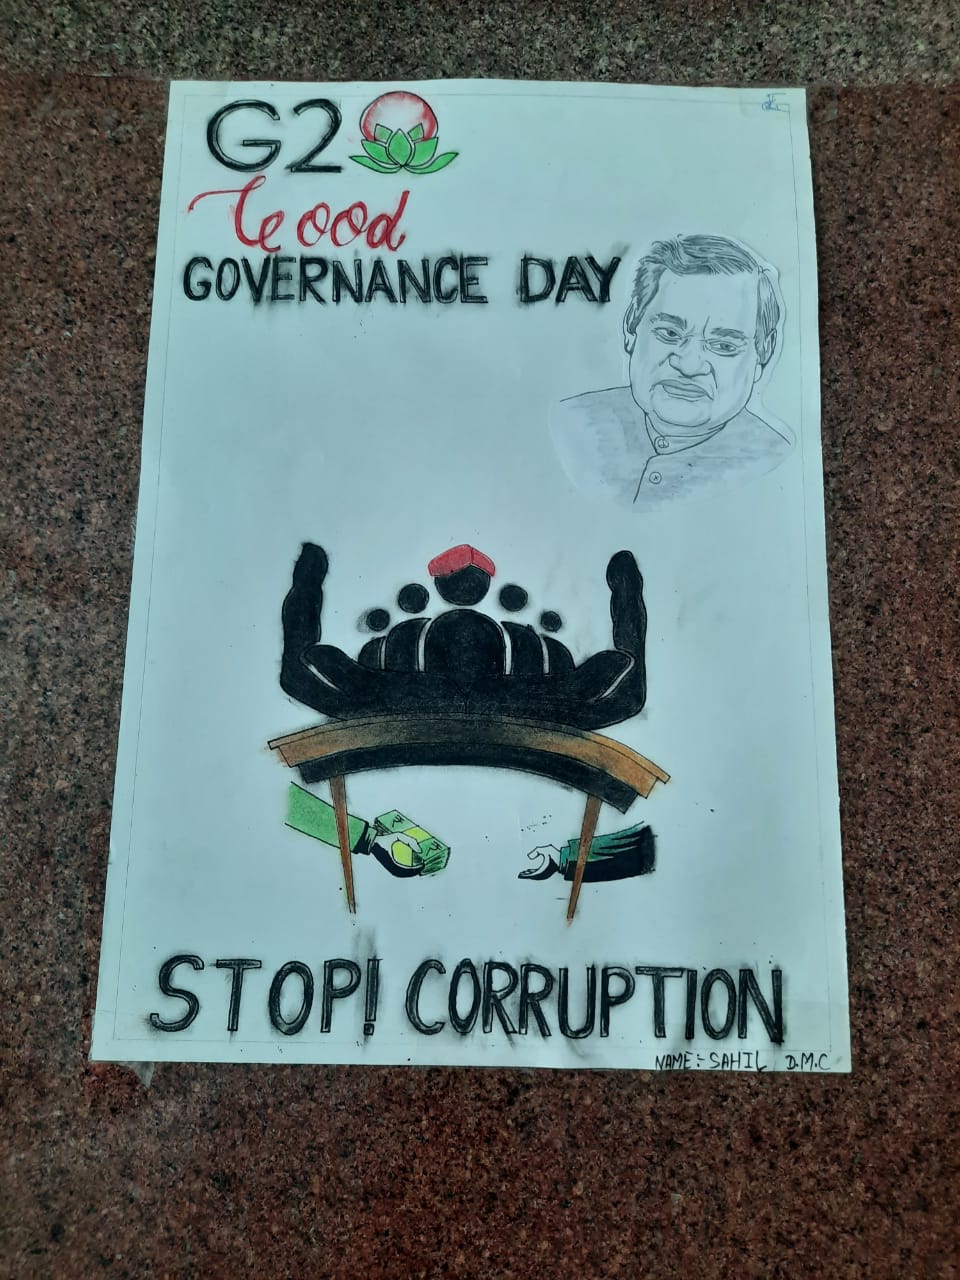 G20
Good
GOVERNANCE DAY
STOP! CORRUPTION
NAME:- SAHIL D.M.C